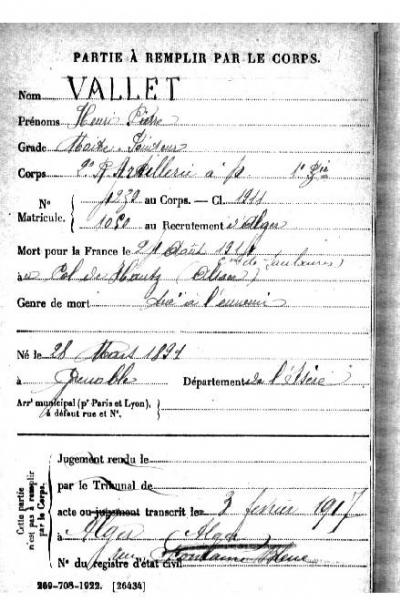 PARTIE À REMPLIR PAR LE CORPS.
Nom VALLET
Prénoms Henri Pierre
Grade Maître Pointeur
Corps 2e R. Artillerie à p 1e
N° Matricule. { 1230 au Corps. — Cl. 1911
au Recrutement d'Alger
Mort pour la France le 21 Août 1914
à Col de (Alsace)
Genre de mort tué à l'ennemi
Né le 28 Mars 1891
à Grenoble Département de l'Isère
Arrt municipal (pr Paris et Lyon), à défaut rue et N°. }
Cette partie n'est pas à remplir par le Corps.
Jugement rendu le
par le Tribunal de
acte ou jugement transcrit le 3 février 1917
à Alger Alger
N° du registre d'état civil
269-708-1922. [26434]